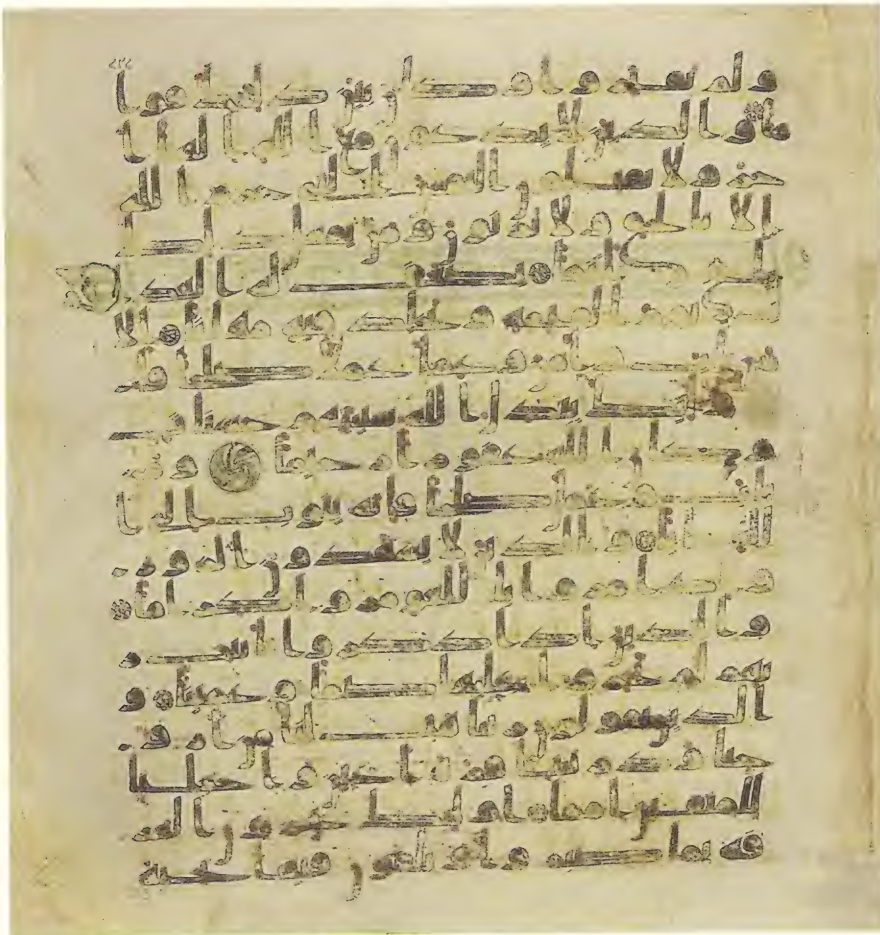 ولم يقتروا وكان بين ذلك قواما
والذين لا يدعون مع الله الها ا
خر ولا يقتلون النفس التى حرم الله
الا بالحق ولا يزنون ومن يفعل ذلك
يلق اثاما يضعف له العذ
اب يوم القيمه ويخلد فيه مهانا الا
من تاب وامن وعمل عملا صلحا فا
ولئك يبدل الله سيئاتهم حسنات
وكان الله غفورا رحيما ومن
تاب وعمل صلحا فانه يتوب الى ا
لله متابا والذين لا يشهدون الزور
واذا مروا باللغو مروا كراما
والذين اذا ذكروا بايت
ربهم لم يخروا عليها صما وعميانا و
الذين يقولون ربنا هب لنا من ازو
جنا وذريتنا قرة اعين واجعلنا
للمتقين اماما اولئك يجزون الغر
فة بما صبروا ويلقون فيها تحية